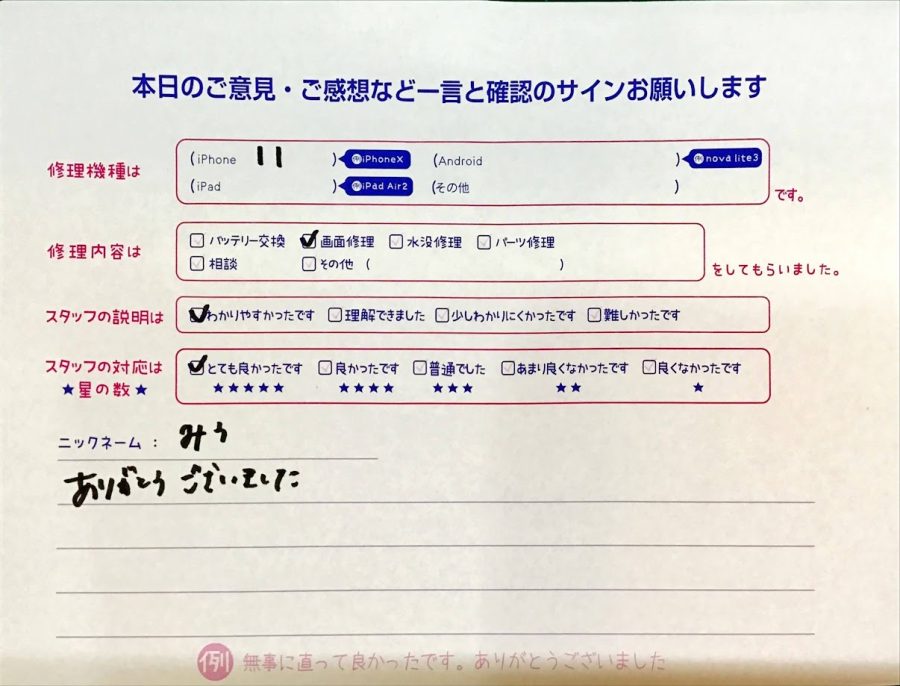 本日のご意見・ご感想など一言と確認のサインお願いします
修理機種は
(iPhone 11 ) 例iPhoneX (Android ) 例nova lite3
(iPad ) 例iPad Air2 (その他 )
です。
修理内容は
バッテリー交換 画面修理 水没修理 パーツ修理
相談 その他 ( )
をしてもらいました。
スタッフの説明は わかりやすかったです 理解できました 少しわかりにくかったです 難しかったです
スタッフの対応は とても良かったです 良かったです 普通でした あまり良くなかったです 良くなかったです
★星の数★ ★★★★★ ★★★★ ★★★ ★★ ★
ニックネーム : みう
ありがとうございました
例 無事に直って良かったです。ありがとうございました